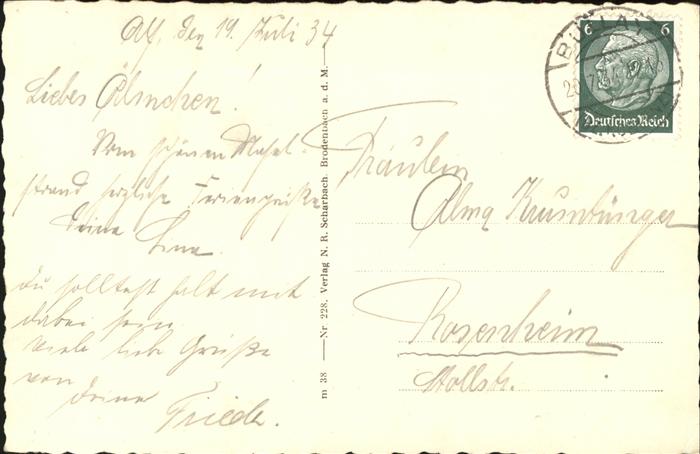 Alf, den 19. Juli 34
Liebes Älmchen!
Vom schönen Mosel-
strand herzliche Feriengrüße
Deine Lina.
Du solltest halt mit
dabei sein
Viele liebe Grüße
von
Deine Friede.
m 38 — Nr. 228. Verlag N. R. Scharbach. Brodenbach a. d. M.—
6 6
Deutsches Reich
BULLAY
Fräulein
Alma
Rosenheim
Stollstr.